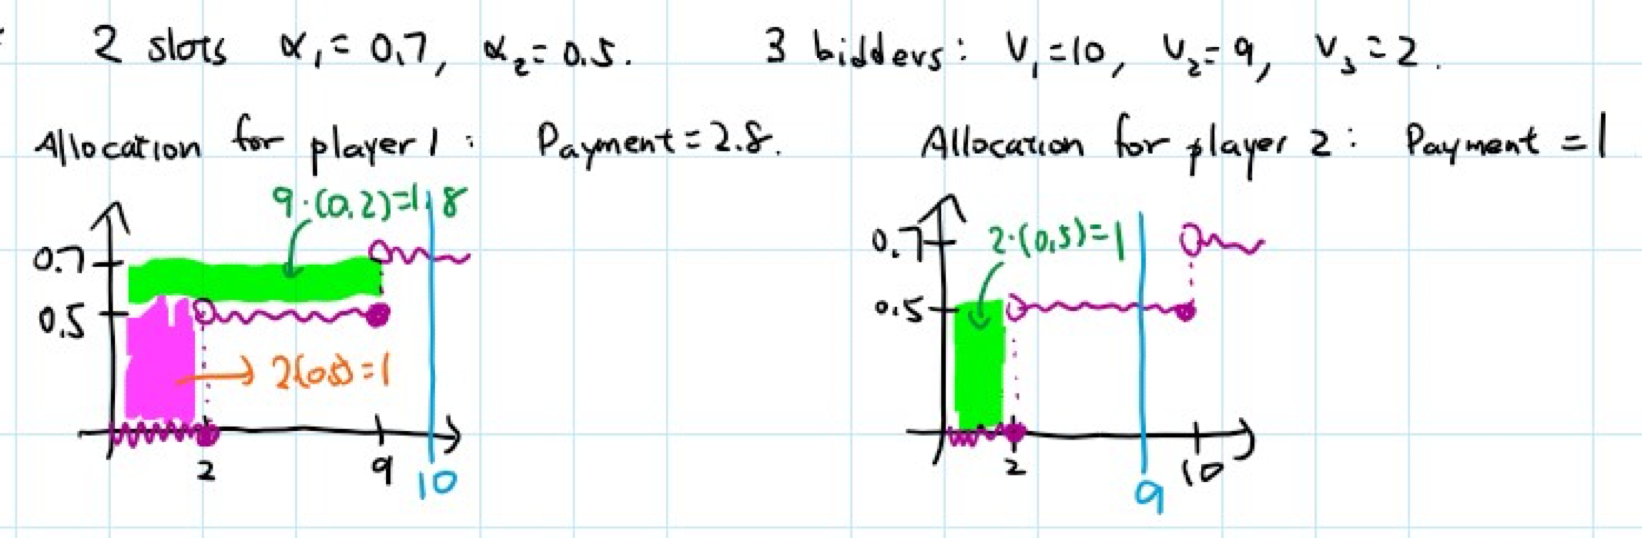 2 slots α₁ = 0.7, α₂ = 0.5. 3 bidders: V₁=10, V₂=9, V₃=2.
Allocation for player 1: Payment = 2.8.
9·(0.2)=1.8
0.7
0.5
2(0.5)=1
2 9 10
Allocation for player 2: Payment = 1
0.7 2·(0.5)=1
0.5
2 9 10